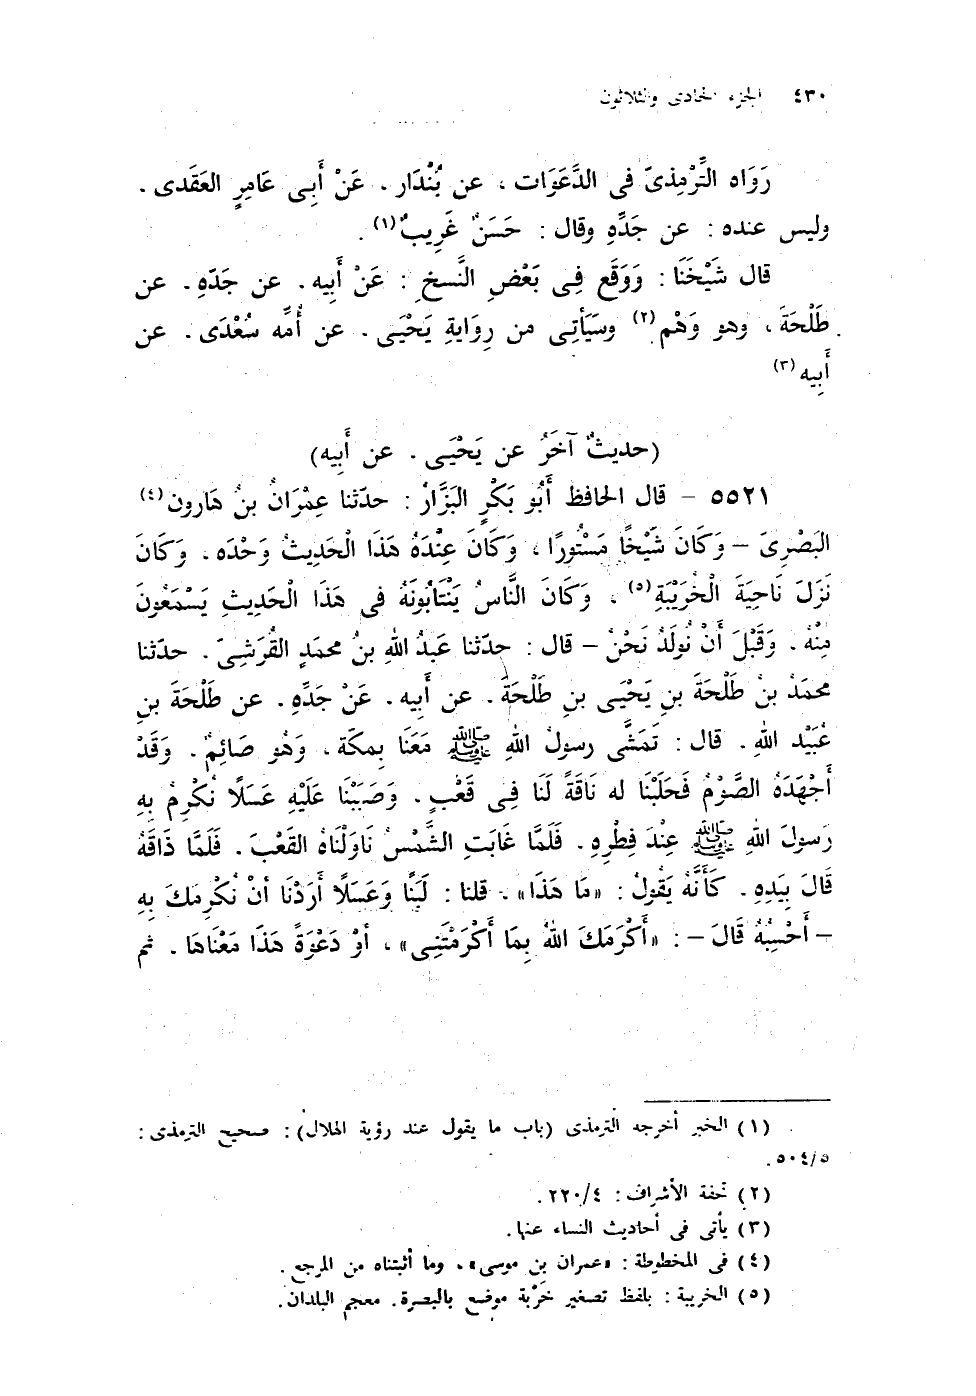 ٤٣٠ الجزء الحادى والثلاثون
رَوَاه التِّرْمِذىّ فى الدَّعَوَات ، عن بُنْدَار . عَنْ أَبِى عَامِرٍ العَقَدى .
وليس عنده : عن جَدِّهِ وقال : حَسَنٌ غَرِيبٌ (١) .
قال شَيْخَنَا : وَوَقَع فِى بَعْضِ النَّسخِ : عَنْ أَبِيه . عن جَدّهِ . عن
طَلْحَةَ ، وهو وَهْم (٢) وسَيَأتِى من رِوَايةِ يَحْيَى . عن أُمِّه سُعْدَى . عن
أَبِيه (٣)
(حديثٌ آخَرُ عن يَحْيَى . عن أَبِيه)
٥٥٢١ – قال الحافظ أَبُو بَكْرٍ البَزَّارْ : حدّثنا عِمْرَانُ بنُ هَارون (٤)
البَصْرِىَ – وكَانَ شَيْخًا مَسْتُورًا ، وَكَانَ عِنْدَهُ هَذَا الْحَدِيثُ وَحْدَه . وكَانَ
نَزَلَ نَاحِيَةَ الْخُرَيْبَةِ (٥) . وَكَانَ النَّاسُ يَنْتَابُونَهُ فى هَذَا الْحَدِيثِ يَسْمَعُونَ
مِنْهُ . وَقَبْلَ أَنْ نُولَدُ نَحْنُ – قال : حدّثنا عَبدُ اللهِ بنُ محمَدٍ القُرَشِىّ . حدّثنا
محمَدْ بنُ طَلْحَةَ بنِ يَحْيَى بنِ طَلْحَةَ . عن أَبِيه . عَنْ جَدِّهِ . عن طَلْحَةَ بنِ
عُبَيْد اللهِ . قال : تَمَشَّى رسولُ اللهِ ﷺ مَعَنَا بِمكَة . وَهُو صَائِمٌ . وَقَدْ
أَجْهَدَهُ الصَّوْمُ فَحَلَبْنَا له نَاقَةً لَنَا فِى قَعْبٍ . وَصَبَبْنَا عَلَيْهِ عَسَلًا نُكْرِمُ بِهِ
رَسولَ اللهِ ﷺ عِنْدَ فِطْرِهِ . فَلَمَّا غَابَتِ الشَّمْسُ نَاوَلْنَاهُ القَعْبَ . فَلَمَّا ذَاقَهُ
قَالَ بِيَدِهِ . كَأَنَّهُ يَقُولُ : «مَا هَذَا» . قلنا : لَبَنًا وَعَسَلًا أَرَدْنَا أنْ نُكْرِمكَ بِهِ
– أَحْسِبُهُ قَالَ – : «أَكْرَمَكَ اللهُ بِمَا أَكْرَمْتَنِى» ، أوْ دَعْوَةً هَذَا مَعْنَاهَا . ثم
(١) الخبر أخرجه الترمذى (باب ما يقول عند رؤية الهلال) : صحيح الترمذى :
٥٠٤/٥ .
(٢) تحفة الأشراف : ٢٢٠/٤ .
(٣) يأتى فى أحاديث النساء عنها .
(٤) فى المخطوطة : «عمران بن موسى» . وما أثبتناه من المرجع .
(٥) الخريبة : بلفظ تصغير خَرْبة موضع بالبصرة . معجم البلدان .